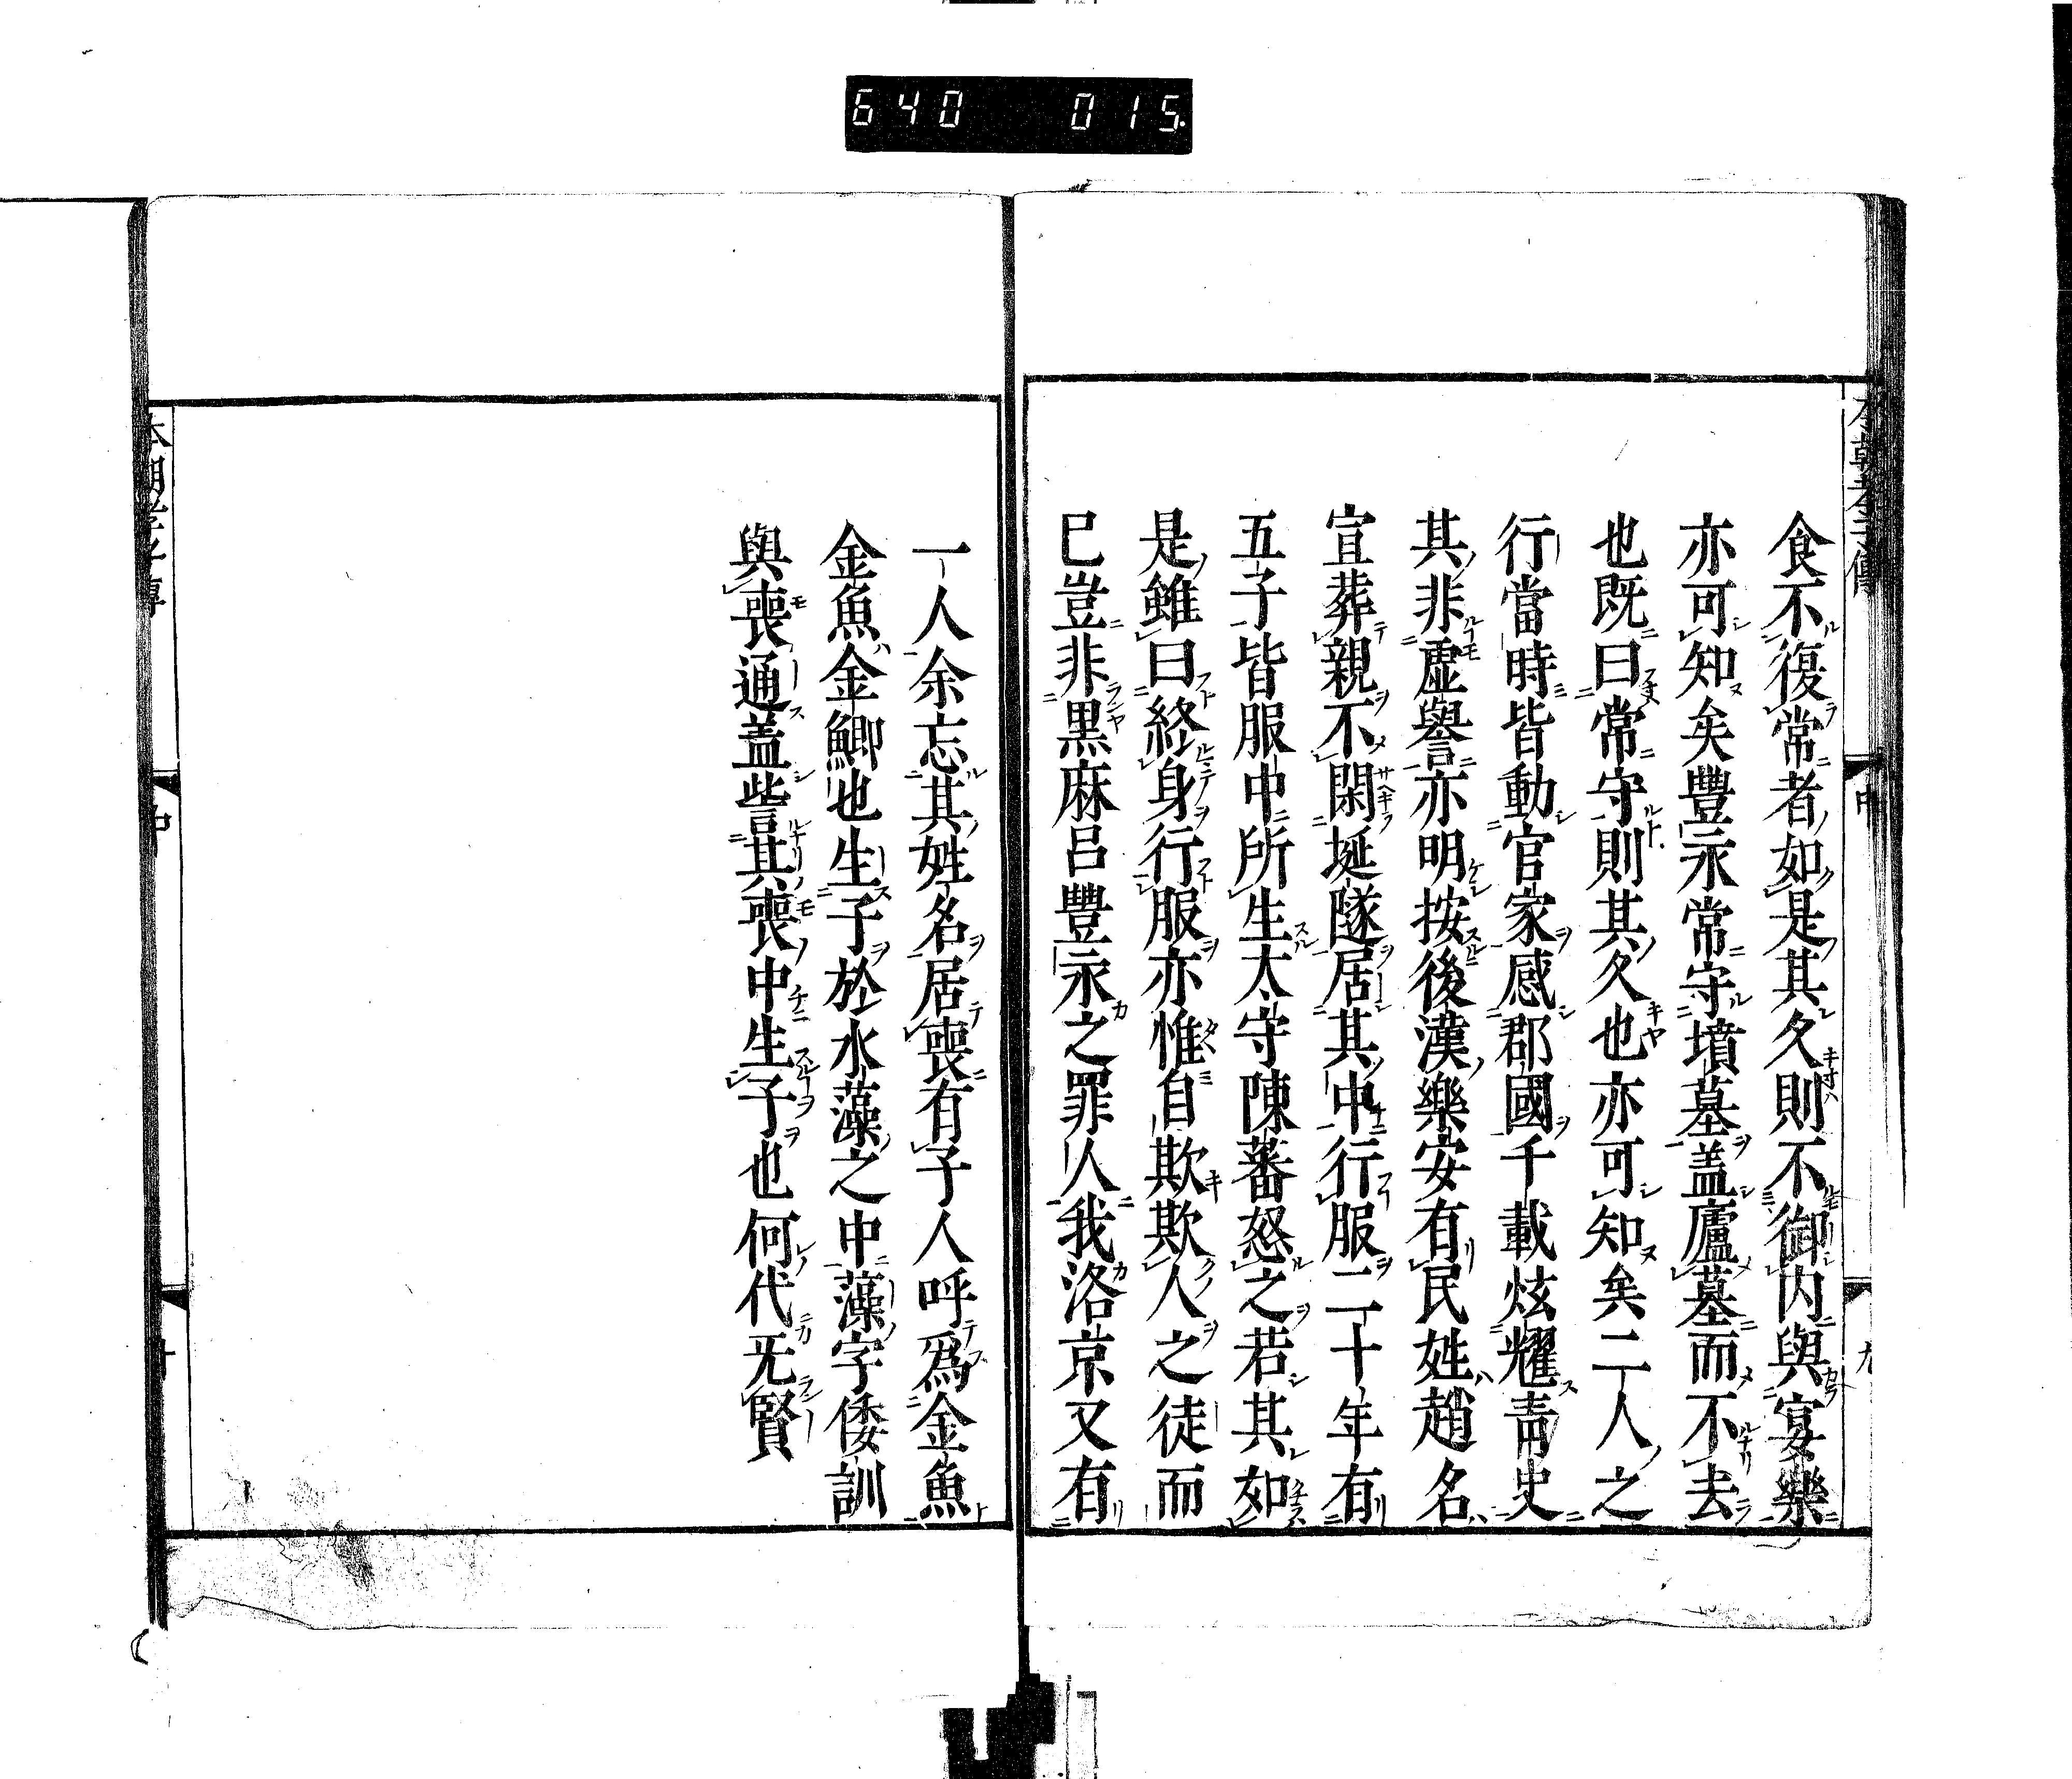 640 015
本朝孝子傳
中
九
食不復常者如是其久則不御内與宴樂
亦可知矣豐永常守墳墓盖廬墓而不去
也既曰常守則其久也亦可知矣二人之
行當時皆動官家感郡國千載炫耀靑史
其非虛譽亦明按後漢樂安有民姓趙名
宣葬親不閑埏隧居其中行服二十年有
五子皆服中所生太守陳蕃怒之若其如
是雖曰終身行服亦惟自欺欺人之徒而
已豈非黒麻呂豐永之罪人我洛京又有
一人余忘其姓名居喪有子人呼爲金魚
金魚金鯽也生子於水藻之中藻字倭訓
與喪通盖訾其喪中生子也何代旡賢
本朝孝子傳
中
十